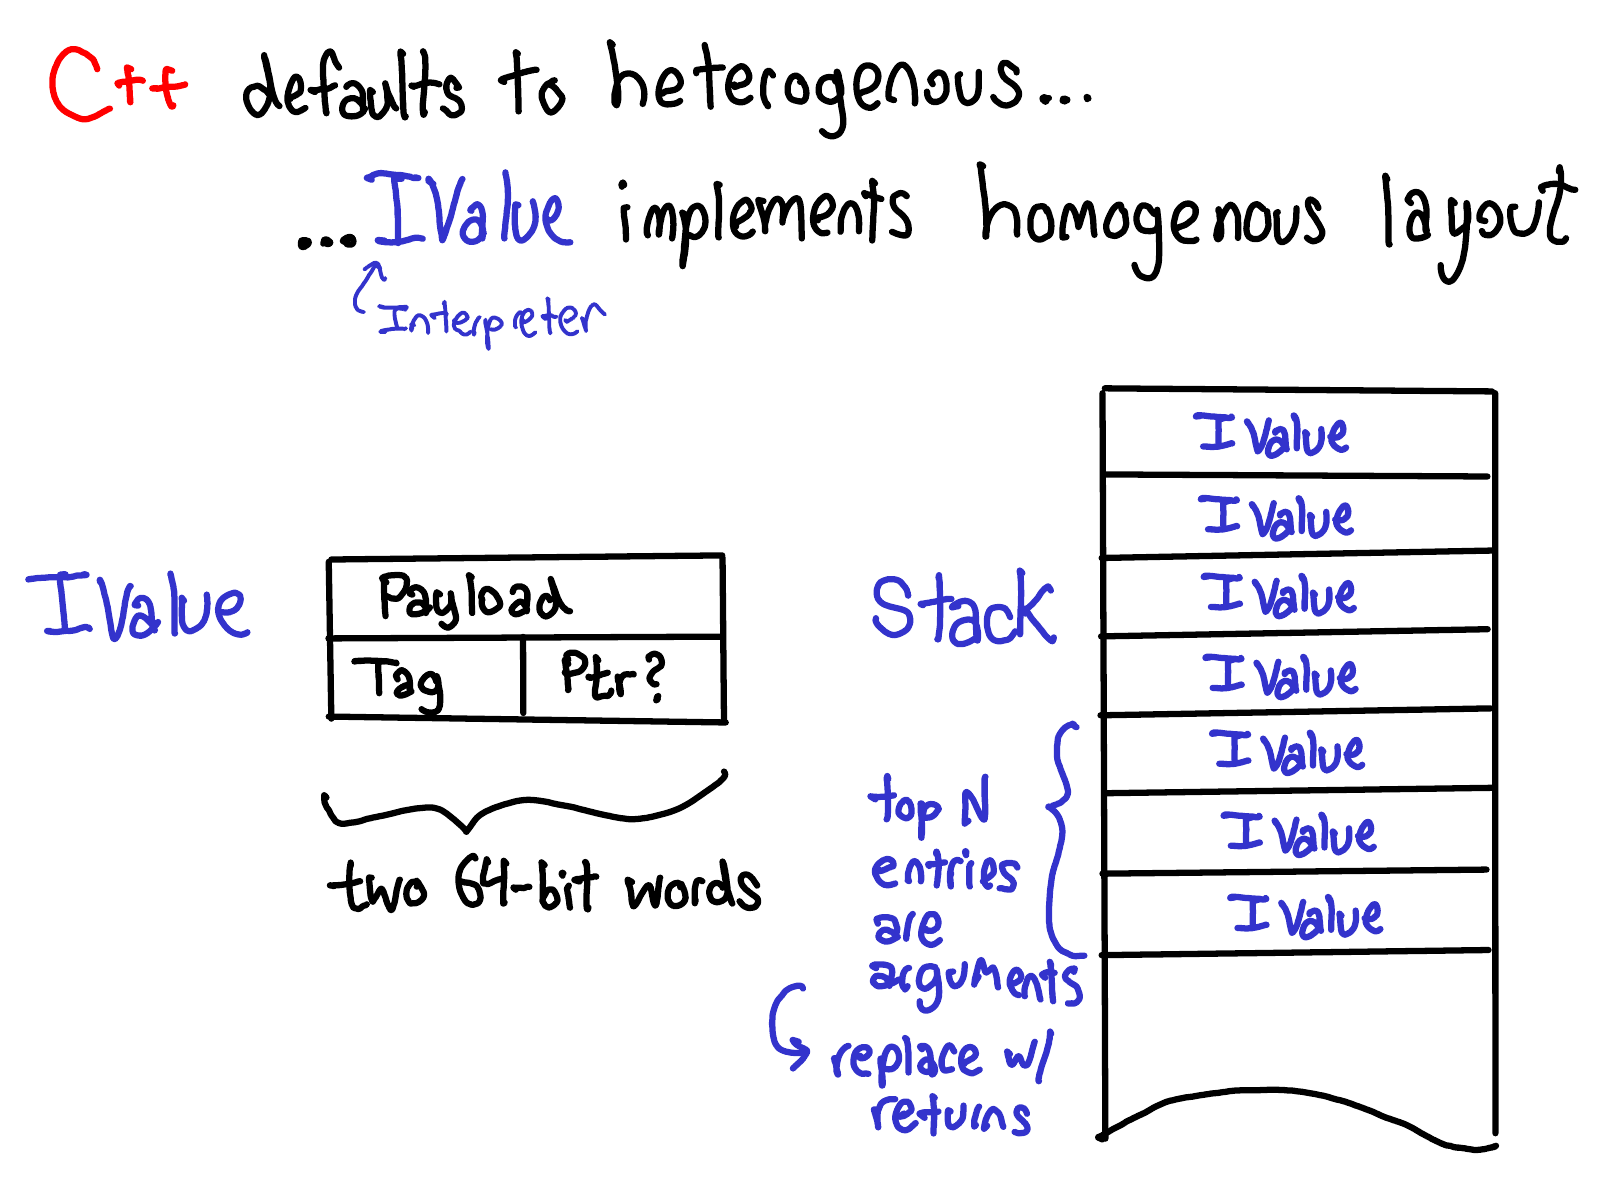 C++ defaults to heterogenous...
...IValue implements homogenous layout
Interpreter
IValue
Payload
Tag
Ptr?
two 64-bit words
Stack
IValue
IValue
IValue
IValue
IValue
IValue
IValue
top N
entries
are
arguments
replace w/
returns